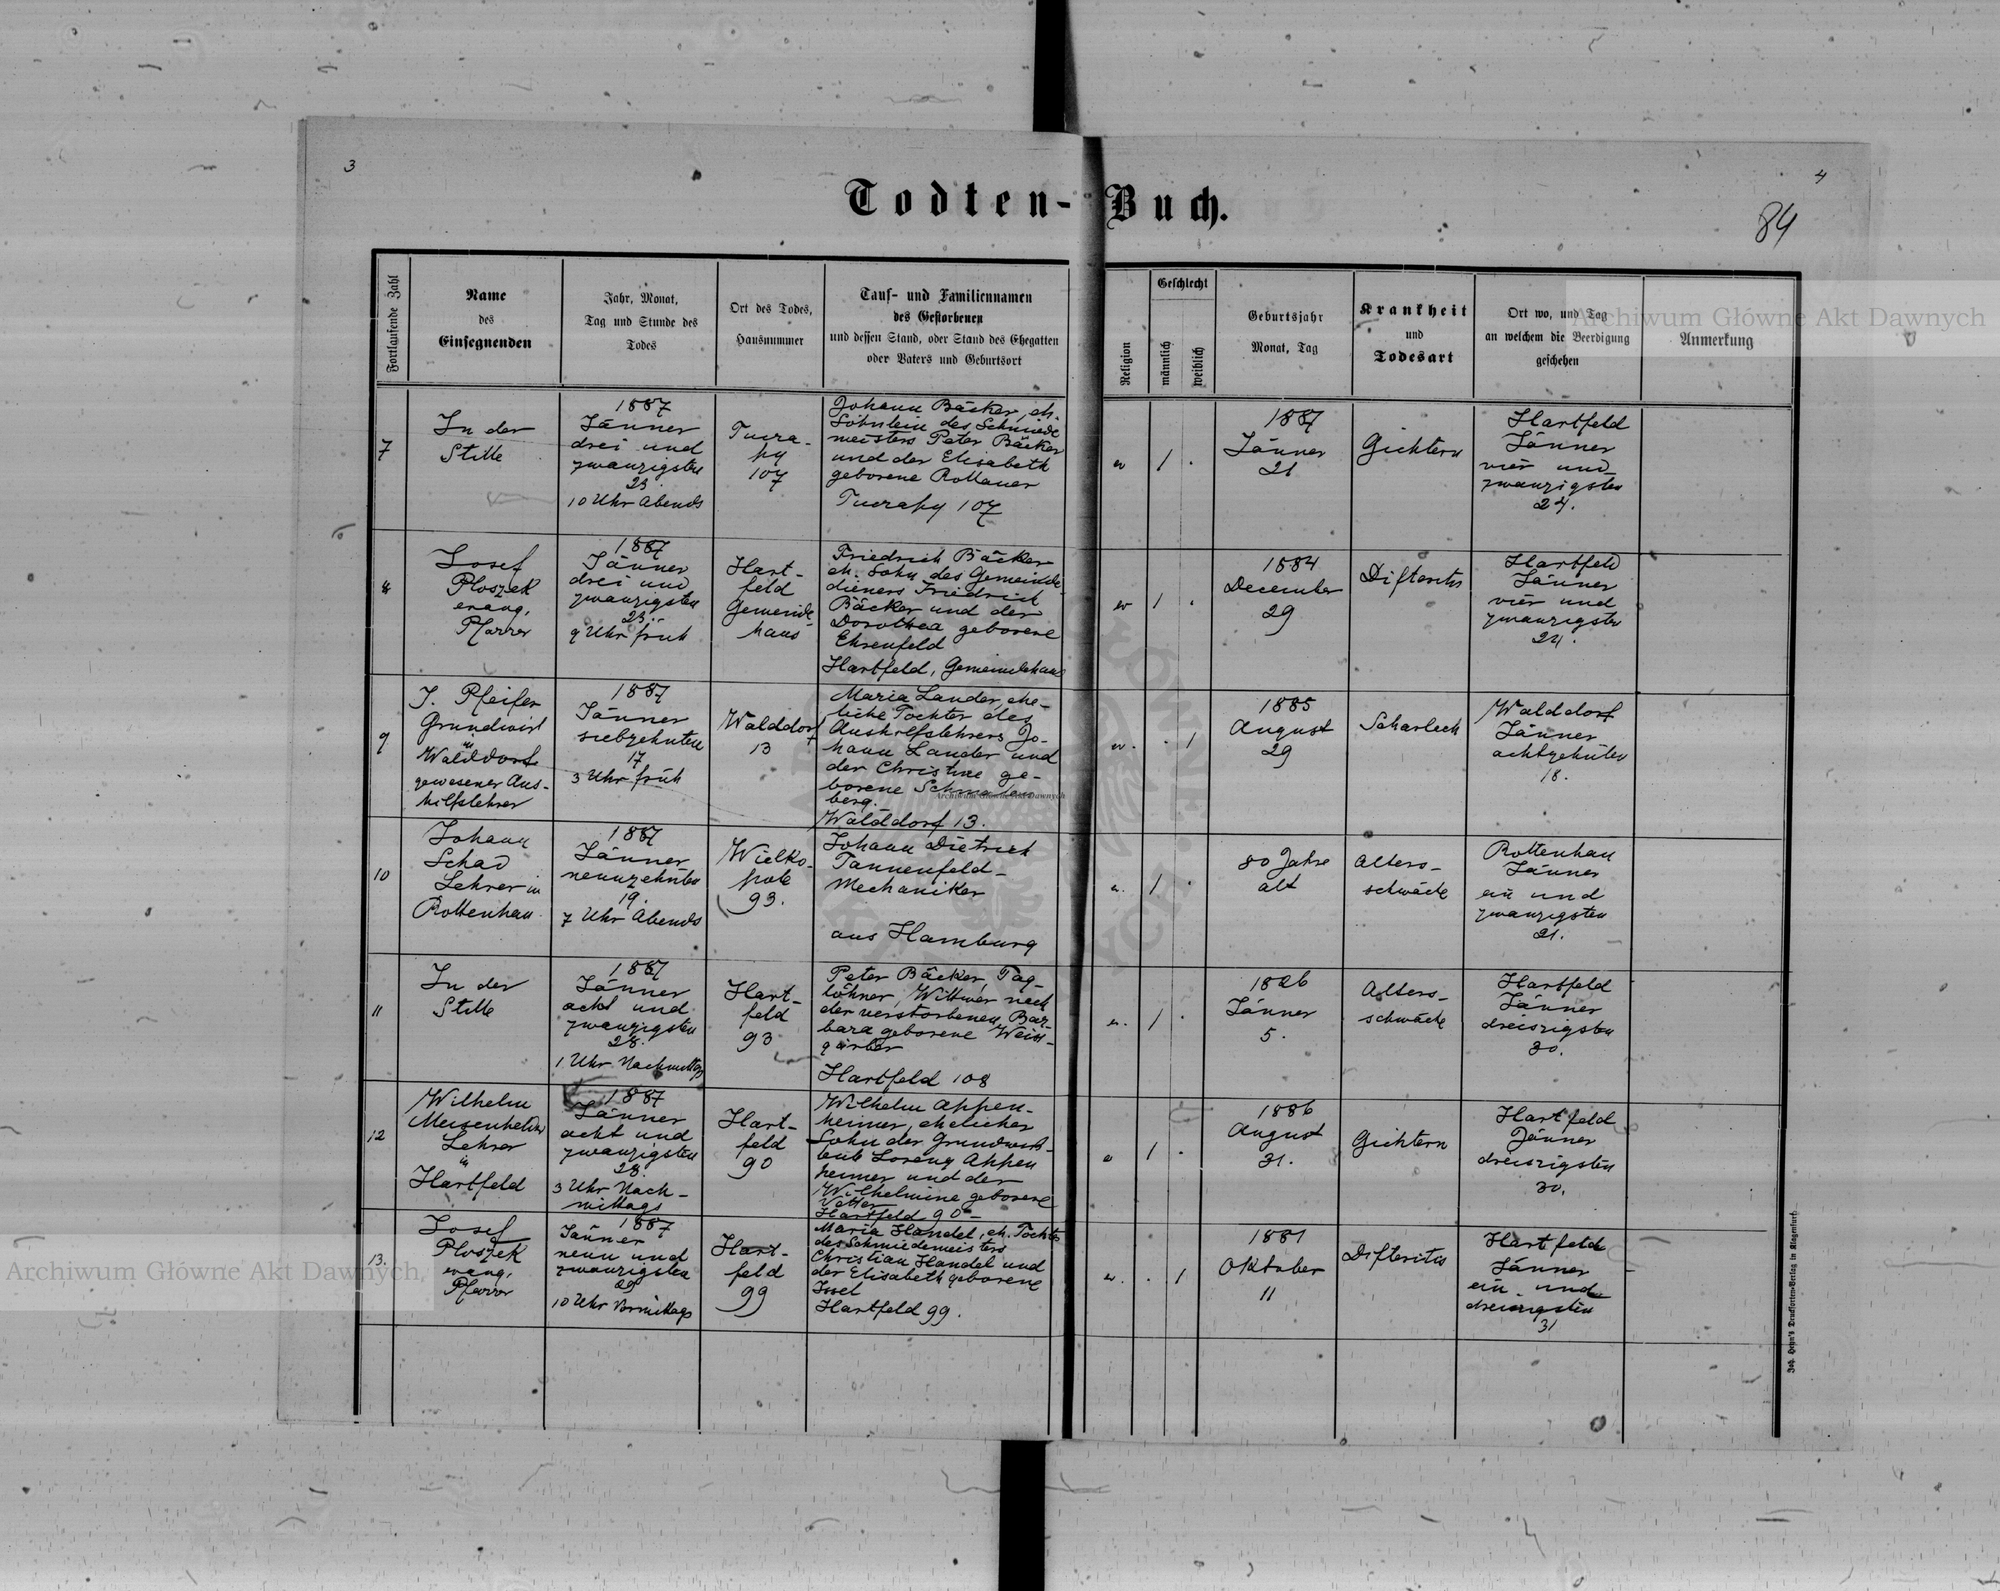 3
4
84
Todten-Buch.
Fortlaufende Zahl
Name
des
Einsegnenden
Jahr, Monat,
Tag und Stunde des
Todes
Ort des Todes,
Hausnummer
Tauf- und Familiennamen
des Gestorbenen
und dessen Stand, oder Stand des Ehegatten
oder Vaters und Geburtsort
Religion
Geschlecht
männlich
weiblich
Geburtsjahr
Monat, Tag
Krankheit
und
Todesart
Ort wo, und Tag
an welchem die Beerdigung
geschehen
Anmerkung
7
In der
Stille
1887
Jänner
drei und
zwanzigsten
23.
10 Uhr Abends
Tucza-
py
107
Johann Bäcker, eh.
Söhnlein des Schmiede
meisters Peter Bäcker
und der Elisabeth
geborene Rottauer
Tuczapy 107
ev
1
.
1887
Jänner
21
Gichtern
Hartfeld
Jänner
vier und
zwanzigsten
24.
8
Josef
Ploszek
evang.
Pfarrer
1887
Jänner
drei und
zwanzigsten
23.
9 Uhr früh
Hart-
feld
Gemeinde-
haus
Friedrich Bäcker
eh. Sohn des Gemeinde
dieners Friedrich
Bäcker und der
Dorothea geborene
Ehrenfeld
Hartfeld, Gemeindehaus
ev
1
.
1884
December
29
Difteritis
Hartfeld
Jänner
vier und
zwanzigsten
24.
9
J. Pfeifer
Grundwirt
in
Walddorf
gewesener Aus-
hilfslehrer
1887
Jänner
siebzehnten
17
3 Uhr früh
Walddorf
13
Maria Lander, ehe-
liche Tochter des
Aushilfslehrers Jo-
hann Lander und
der Christine ge-
borene Schmalen
berg.
Walddorf 13.
ev.
.
1
1885
August
29
Scharlach
Walddorf
Jänner
achtzehnten
18.
10
Johann
Schad
Lehrer in
Rottenhan
1887
Jänner
neunzehnten
19.
7 Uhr Abends
Wielko-
pole
93.
Johann Dietrich
Tannenfeld-
Mechaniker
aus Hamburg
e.
1
.
80 Jahre
alt
Alters-
schwäche
Rottenhan
Jänner
ein und
zwanzigsten
21.
11
In der
Stille
1887
Jänner
acht und
zwanzigsten
28.
1 Uhr Nachmittags
Hart-
feld
93
Peter Bäcker, Tag-
löhner, Wittwer nach
der verstorbenen Bar-
bara geborene Weiss-
gärber
Hartfeld 108
ev.
1
.
1826
Jänner
5.
Alters-
schwäche
Hartfeld
Jänner
dreiszigsten
30.
12
Wilhelm
Meisenhelder
Lehrer
in
Hartfeld
1887
Jänner
acht und
zwanzigsten
28.
3 Uhr Nach-
mittags
Hart-
feld
90
Wilhelm Appen-
heimer, ehelicher
Sohn der Grundwirts-
leute Lorenz Appen
heimer und der
Wilhelmine geborene
Vetter
Hartfeld 90-
e
1
.
1886
August
31.
Gichtern
Hartfeld
Jänner
dreiszigsten
30.
13.
Josef
Ploszek
evang.
Pfarrer
1887
Jänner
neun und
zwanzigsten
29
10 Uhr Vormittags
Hart-
feld
99
Maria Handel, eh. Tochter
des Schmiedemeisters
Christian Handel und
der Elisabeth geborene
Issel
Hartfeld 99.
ev.
.
1
1881
Oktober
11
Difteritis
Hartfeld
Jänner
ein und
dreiszigsten
31
Joh. Heyn's Drucksorten-Verlag in Klagenfurt.
Archiwum Główne Akt Dawnych
Archiwum Główne Akt Dawnych
Archiwum Główne Akt Dawnych